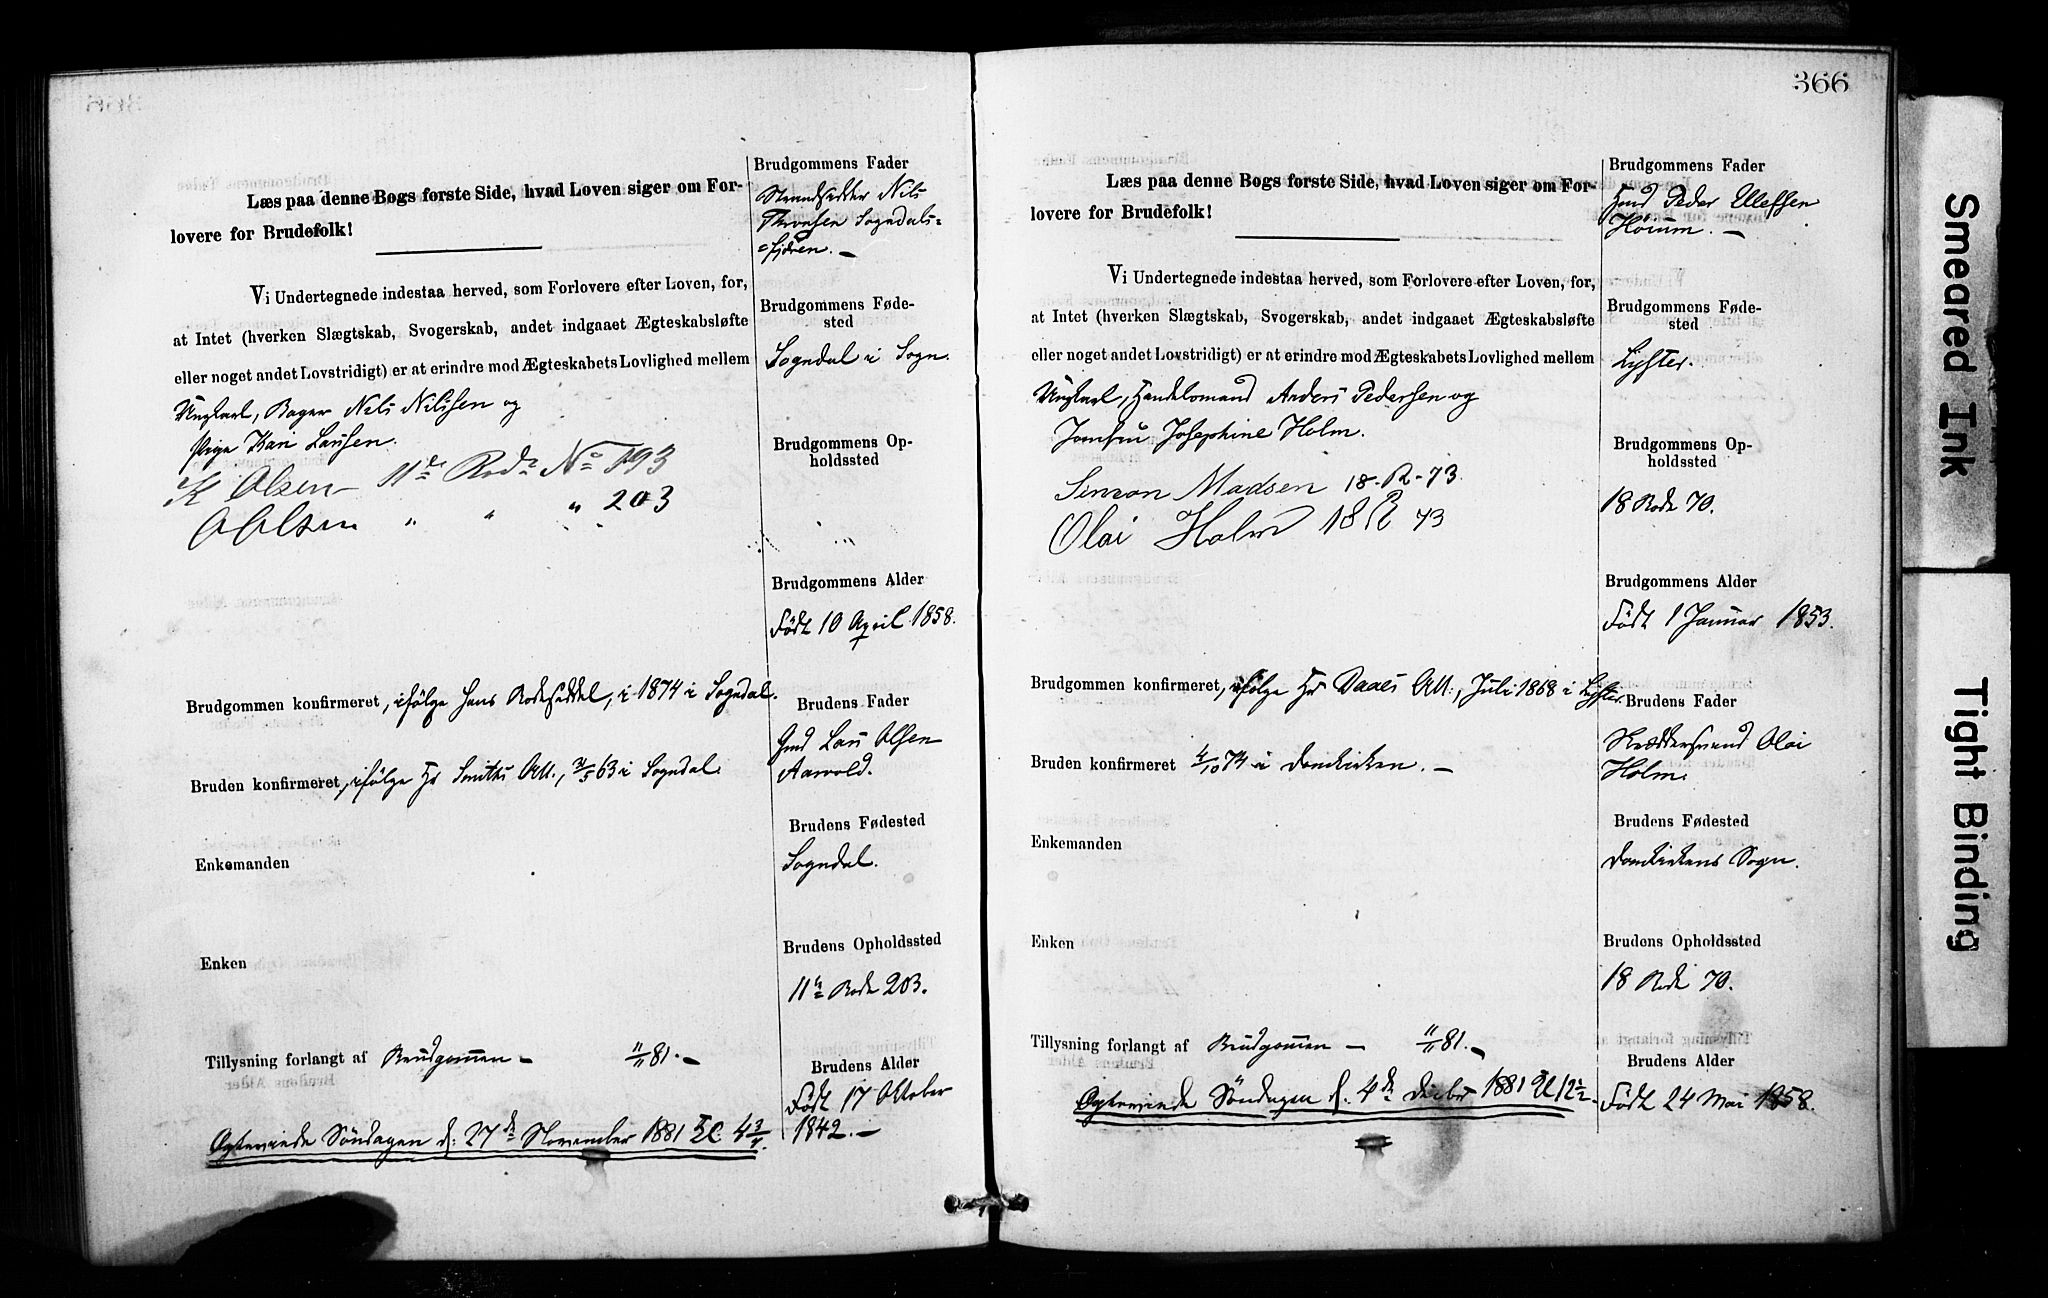 Læs paa denne Bogs første Side, hvad Loven siger om For-
lovere for Brudefolk!
Vi Undertegnede indestaa herved, som Forlovere efter Loven, for,
at Intet (hverken Slægtskab, Svogerskab, andet indgaaet Ægteskabsløfte
eller noget andet Lovstridigt) er at erindre mod Ægteskabets Lovlighed mellem
Ungkarl, Bager Nils Nilssen og
Pige Kari Larsen.
K Olsen 11de Rode No 193
O Olsen " " " 203
Brudgommen konfirmeret, ifølge hans Rodeseddel, i 1874 i Sogndal.
Bruden konfirmeret, ifølge Hr Smiths Att., 63 i Sogndal.
Enkemanden
Enken
Tillysning forlangt af Brudgommen – 11/11 81. –
Ægteviede Søndagen d: 27de November 1881 Kl. 4 3/4.
Brudgommens Fader
Strandsidder Nils
Sogndals=
=fjæren. –
Brudgommens Føde-
sted
Sogndal i Sogn.
Brudgommens Op-
holdssted
Brudgommens Alder
Født 10 April 1858.
Brudens Fader
Gmd Lars Olsen
Aarvold.
Brudens Fødested
Sogndal.
Brudens Opholdssted
11te Rode 203.
Brudens Alder
Født 17 Oktober
1842. –
366
Læs paa denne Bogs første Side, hvad Loven siger om For-
lovere for Brudefolk!
Vi Undertegnede indestaa herved, som Forlovere efter Loven, for,
at Intet (hverken Slægtskab, Svogerskab, andet indgaaet Ægteskabsløfte
eller noget andet Lovstridigt) er at erindre mod Ægteskabets Lovlighed mellem
Ungkarl, Handelsmand Anders Pedersen og
Jomfru Josephine Holm.
Simon Madsen 18-R-73
Olai Holm 18 R 73
Brudgommen konfirmeret, ifølge Hr Daaes Att:, Juli 1868 i Lyster.
Bruden konfirmeret 4/10 74 i Domkirken. –
Enkemanden
Enken
Tillysning forlangt af Brudgommen – 11/11 81. –
Ægteviede Søndagen d. 4de Decbr 1881 Kl 12 1/2.
Brudgommens Fader
Hmd Peder Ullessen
Høium. –
Brudgommens Føde-
sted
Lyster.
Brudgommens Op-
holdssted
18 Rode 70.
Brudgommens Alder
Født 1 Januar 1853.
Brudens Fader
Skræddersvend Olai
Holm.
Brudens Fødested
Domkirkens Sogn.
Brudens Opholdssted
18 Rode 70.
Brudens Alder
Født 24 Mai 1858.
Smeared Ink
Tight Binding